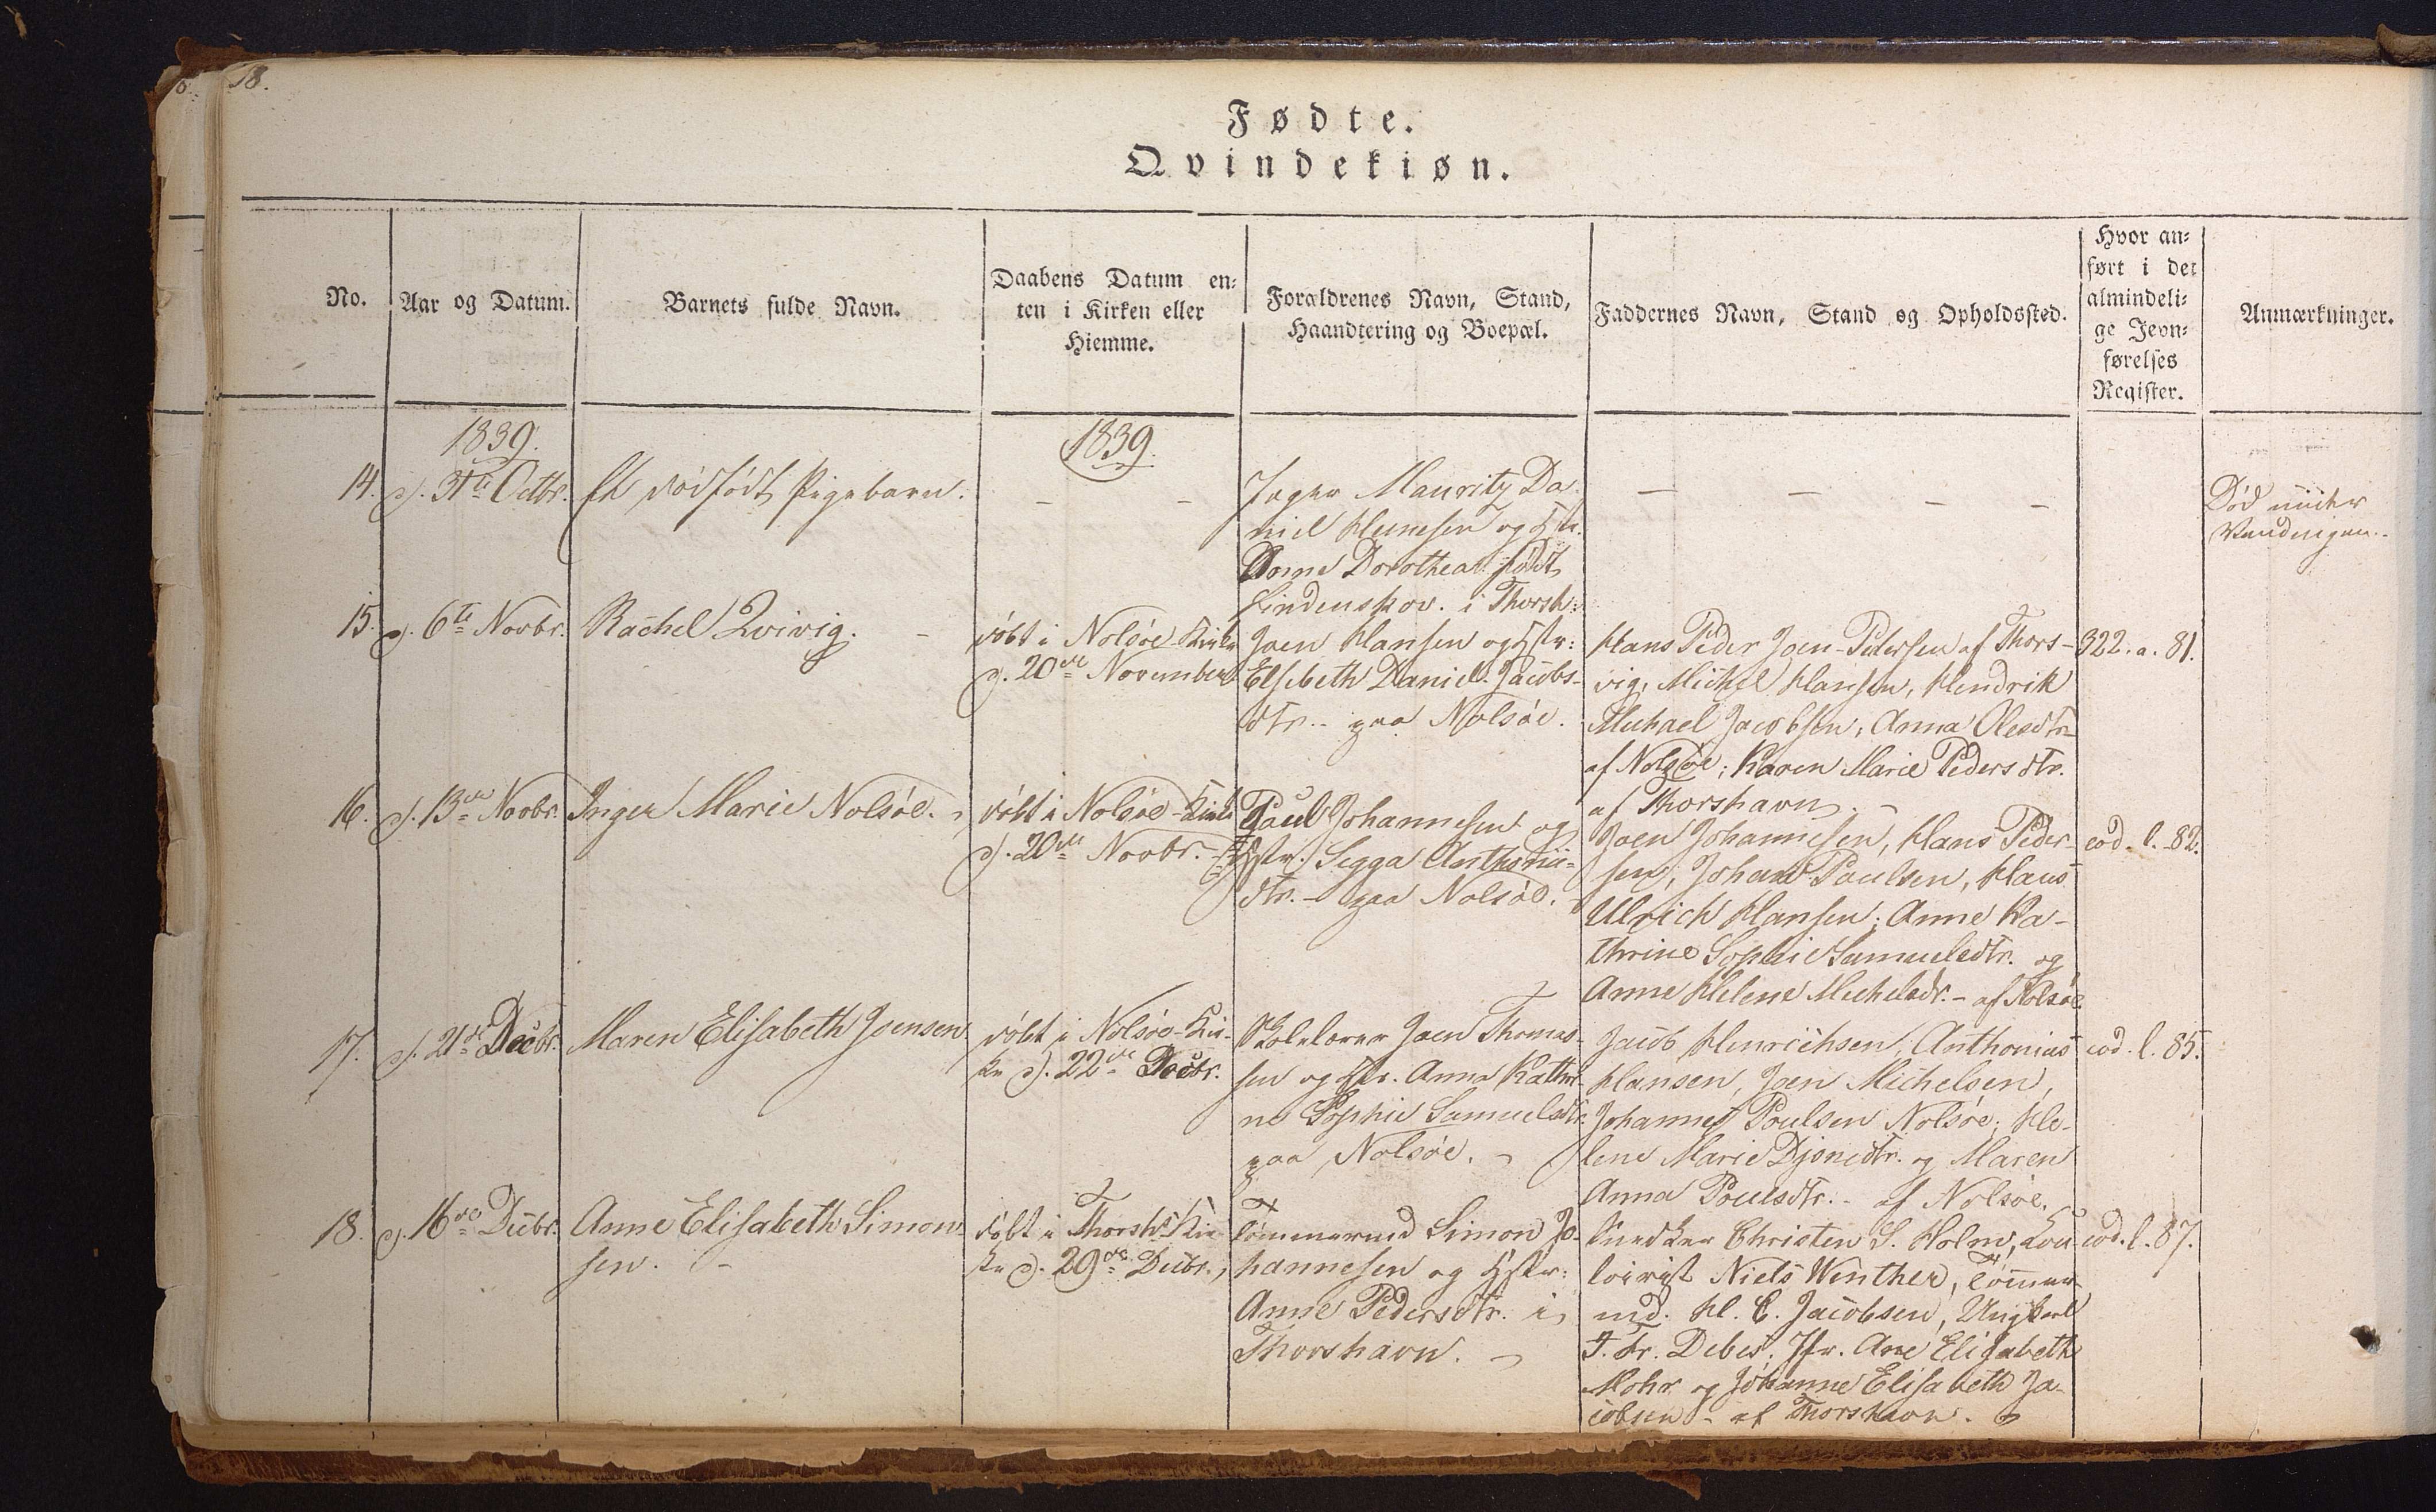 18.
Fødte.
Qvindekiøn.
No.
Aar og Datum.
Barnets fulde Navn.
Daabens Datum en-
ten i Kirken eller
Hiemme.
Forældrenes Navn, Stand,
Haandtering og Boepæl.
Faddernes Navn, Stand og Opholdssted.
Hvor an-
ført i det
almindeli-
ge Jevn-
førelses
Register.
Anmærkninger.
1839.
1839.
14.
d. 31te Octbr.
Et dødfødt Pigebarn.
Mauritz Da-
niel Hemesen og Hst.
Dorothea født
Lindenskov. i Thorsh:
Død under
15.
d. 6te Novbr.
Rachel Qvivig.
døbt i Nolsöe-Kirke
d. 20de November
Joen Hansen og Hstr:
Elsebeth Daniel Jacobs-
dtr. paa Nolsöe.
Hans Peder Joen-Petersen af Thors-
vig, Michel Hansen, Hendrik
Michael Jacobsen, Anna Olesdtr
af Nolsöe; Karen Marie Pedersdtr.
af Thorshavn.
322. a. 81.
16.
d. 13de Novbr.
Inger Marie Nolsöe.
døbt i Nolsöe-Kirke
d. 20de Novbr.
Poul Johannesen og
Hstr. Segga Anthonii-
dtr. - paa Nolsöe.
Joen Johannesen, Hans Peder-
sen, Johan Poulsen, Hans
Ulrich Hansen; Anne Ka-
thrine Sophie Samuelsdtr. og
Anne Helene Michelsdr. - af Nolsöe
eod. l. 82.
17.
d. 21de Decbr.
Maren Elisabeth Joensen
døbt i Nolsöe-Kir-
ke d. 22de Decbr.
Skolelærer Joen Thomas-
sen og Hstr. Anna Kathri-
ne Sophie Samuelsdtr.
paa Nolsöe.
Jacob Henrichsen, Anthonius
Hansen, Joen Michelsen,
Johannes Poulsen Nolsöe; He-
lene Marie Djonidtr. og Maren
Anna Poulsdtr. - af Nolsöe.
eod. l. 85.
18.
d. 16de Decbr.
Anne Elisabeth Simon-
sen.
døbt i Thorshs Kir-
ke d. 29de Decbr.
Tömmermd Simon Jo-
hannesen og Hstr:
Anne Pedersdtr. i
Thorshavn.
Snedker Christen S. Holm,
Niels Winther, Tömmer-
md. H. C. Jacobsen, Ungkarl
J. Fr. Debes. Jfr. Ane Elisabeth
Mohr og Johanne Elisabeth Ja-
cobsen - af Thorshavn.
eod. l. 87.